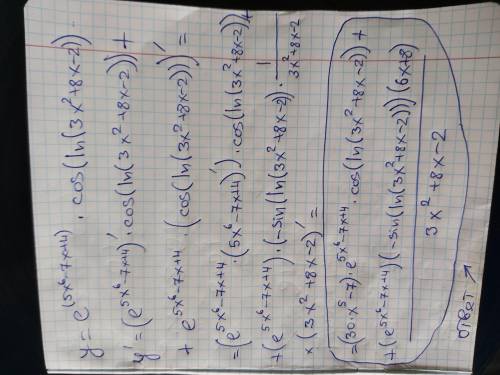 y = e^(5x⁶-7x+4) · cos(ln(3x²+8x-2))
y' = (e^(5x⁶-7x+4))' · cos(ln(3x²+8x-2)) +
+ e^(5x⁶-7x+4) · (cos(ln(3x²+8x-2)))' =
= (e^(5x⁶-7x+4) · (5x⁶-7x+4)') · cos(ln(3x²+8x-2)) +
+ (e^(5x⁶-7x+4)) · (-sin(ln(3x²+8x-2)) · 1/(3x²+8x-2)
× (3x²+8x-2)' =
= (30·x⁵-7) · e^(5x⁶-7x+4) · cos(ln(3x²+8x-2)) +
+ (e^(5x⁶-7x+4))(-sin(ln(3x²+8x-2)))(6x+8)
3x²+8x-2
ответ